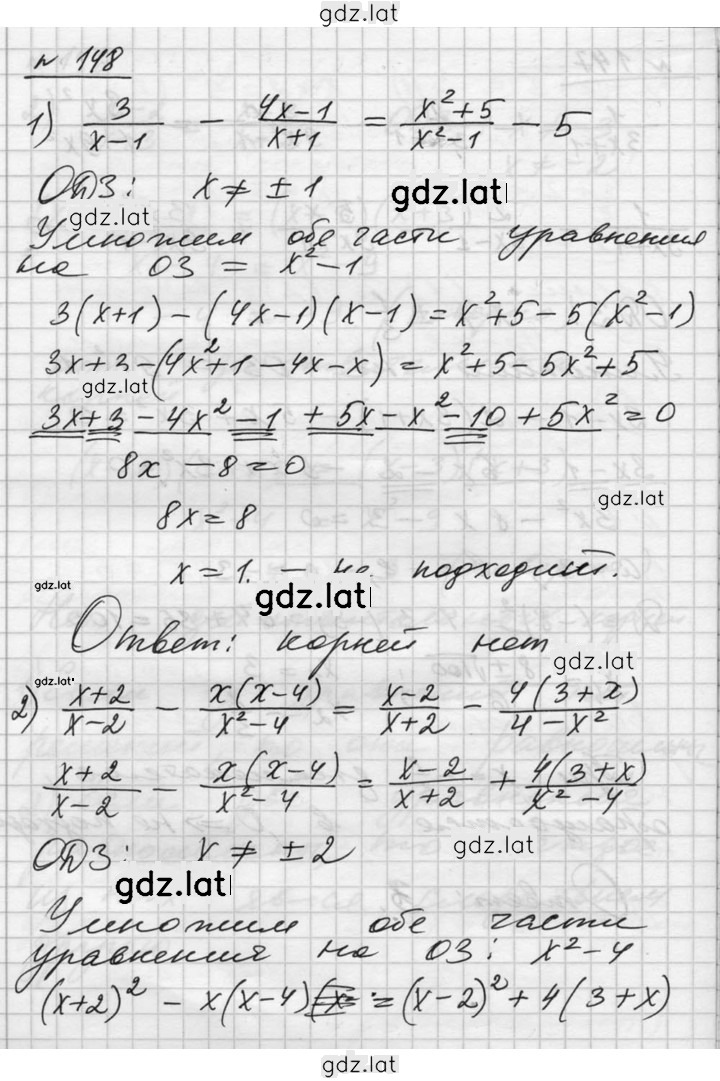 gdz.lat
№ 148
1) 3/(x-1) - (4x-1)/(x+1) = (x²+5)/(x²-1) - 5
ОДЗ: x ≠ ± 1
gdz.lat
gdz.lat
Умножим обе части уравнения
на ОЗ = x²-1
3(x+1) - (4x-1)(x-1) = x²+5-5(x²-1)
3x+3-(4x²+1-4x-x) = x²+5-5x²+5
gdz.lat
3x+3-4x²-1 +5x-x²-10+5x²=0
8x -8=0
gdz.lat
8x=8
x=1. - не подходит.
gdz.lat
gdz.lat
Ответ: корней нет
gdz.lat
gdz.lat
2) (x+2)/(x-2) - x(x-4)/(x²-4) = (x-2)/(x+2) - 4(3+x)/(4-x²)
(x+2)/(x-2) - x(x-4)/(x²-4) = (x-2)/(x+2) + 4(3+x)/(x²-4)
ОДЗ: x ≠ ± 2
gdz.lat
gdz.lat
Умножим обе части
уравнения на ОЗ: x²-4
(x+2)² - x(x-4) = (x-2)²+4(3+x)
gdz.lat